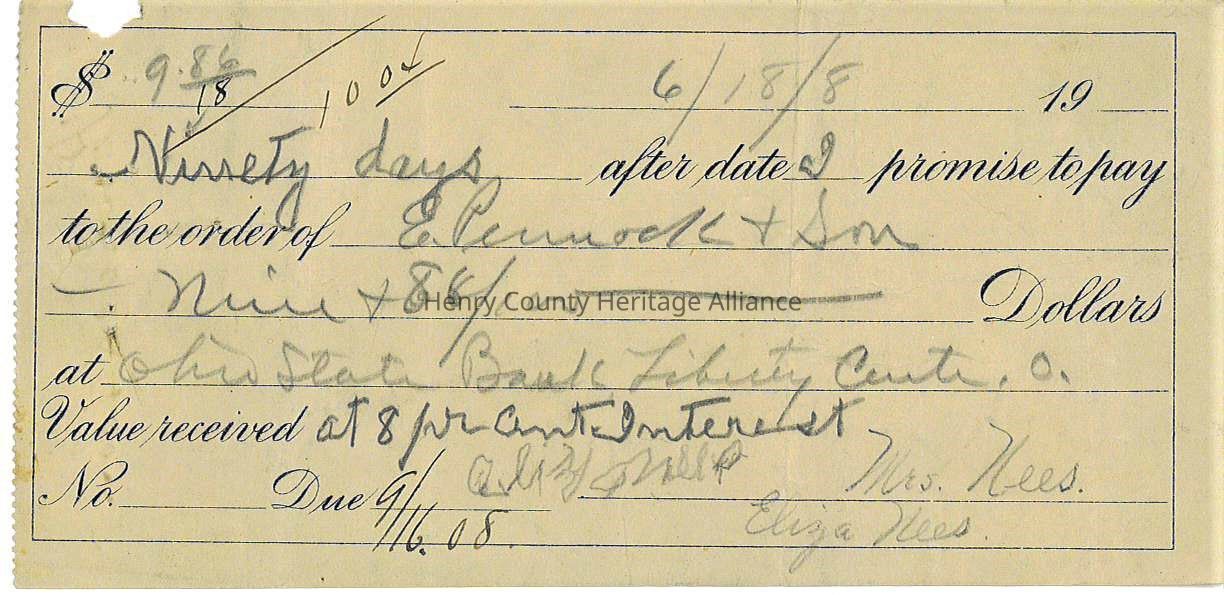 $ 9.86 6/18/8 19
18 10 04
Ninety days after date I promise to pay
to the order of E. Pennock + Son
Nine + 86/ Dollars
Henry County Heritage Alliance
at Ohio State Bank Liberty Cente. O.
Value received at 8 pr cent Interest
No. Due 9/16.08. Mrs. Nees.
Eliza Nees.